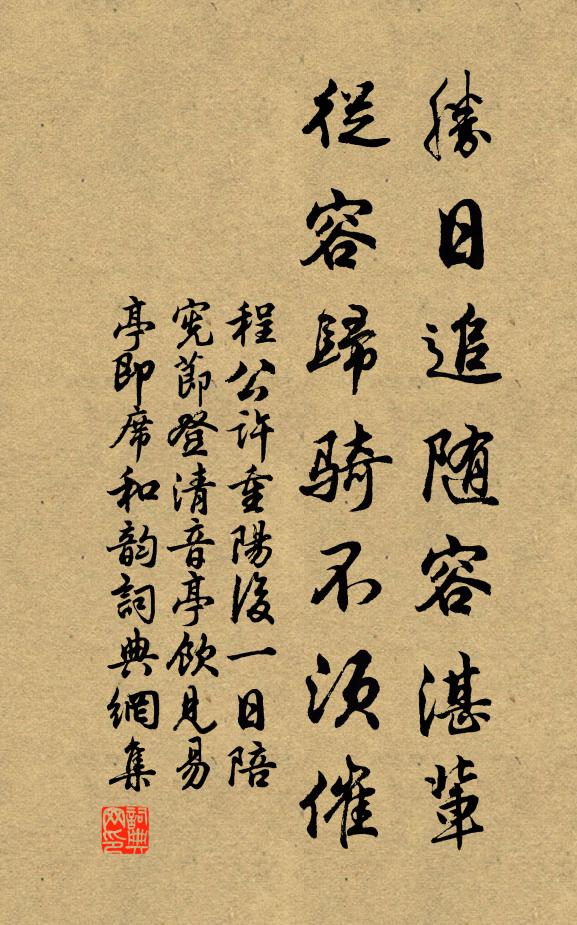 勝日追随容湛輩
從容歸騎不須催
程公許重陽後一日陪
憲節登清音亭飲見易
亭即席和韵詞典網集
詞典
网印